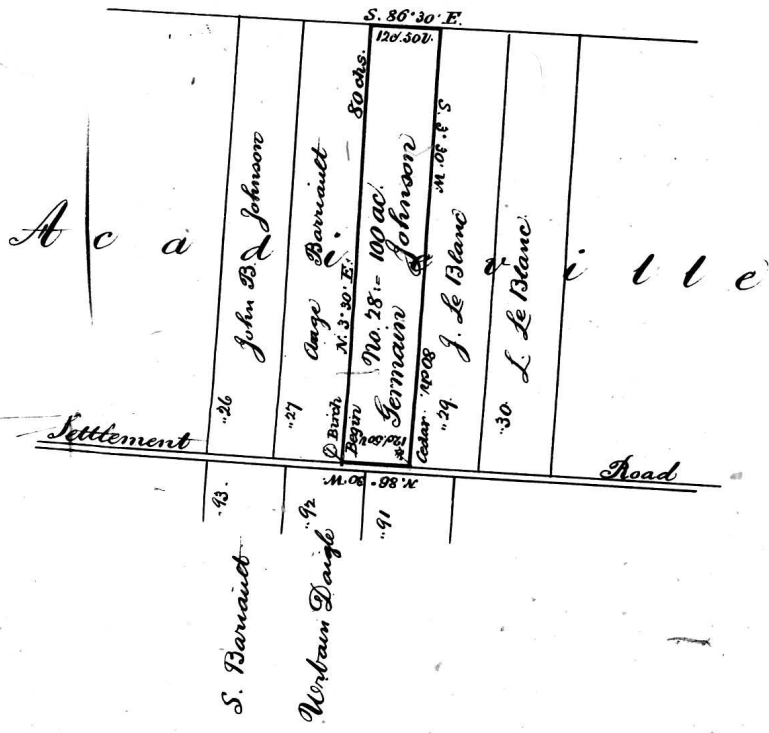 S. 86° 30' E.
12d. 50l.
80 chs.
S. 3° 30' W.
Acadiaville
John B. Johnson
Ange Barriault
N. 3° 30' E.
No. 28 = 100 ac.
Germain Johnson
J. Le Blanc
L. Le Blanc
"26
"27
Birch
Begin
12d. 50l.
Cedar
80 ch.
"29
"30
Settlement Road
N. 86° 30' W.
"93.
"92
"91
S. Bariault
Urbain Daigle